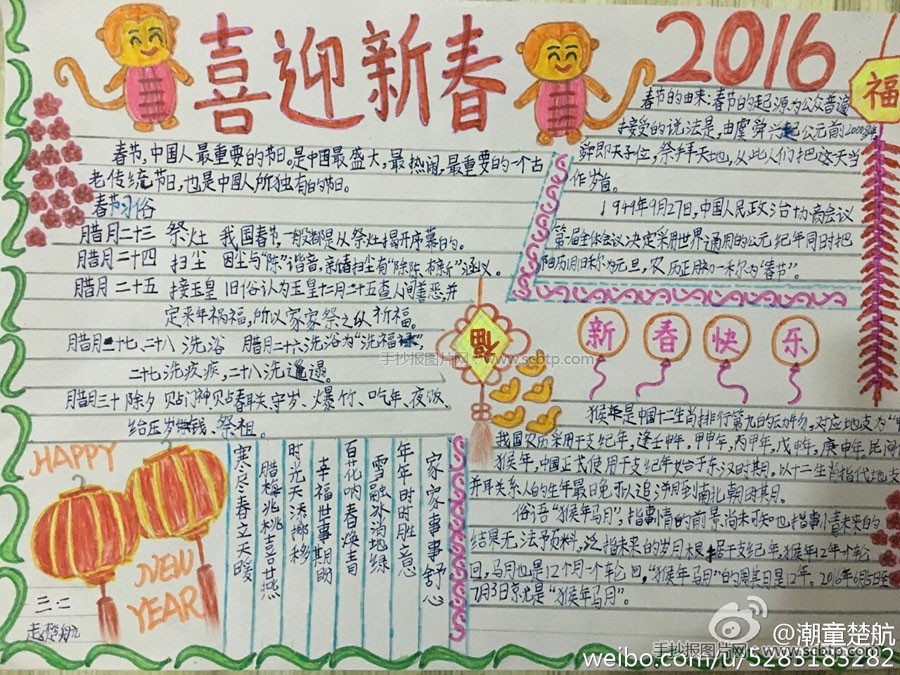 喜迎新春
2016
福
春节,中国人最重要的节日。是中国最盛大,最热闹,最重要的一个古
老传统节日,也是中国人所独有的的节日。
春节习俗
腊月二十三 祭灶 我国春节,一般都是从祭灶揭开序幕的。
腊月二十四 扫尘 因尘与“陈”谐音,新春扫尘有“除陈布新”涵义。
腊月二十五 接玉皇 旧俗认为玉皇十二月二十五查人间善恶,并
定来年祸福,所以家家祭之以祈福。
腊月二十七、二十八 洗浴 腊月二十六洗浴为“洗福禄”,
二十七洗疚疾,二十八洗邋遢。
腊月三十 除夕 贴门神贴春联、守岁、爆竹、吃年、夜饭、
给压岁钱、祭祖。
春节的由来:春节的起源为公众普遍
接受的说法是,由虞舜兴起公元前2000年,
舜即天子位,祭拜天地,从此人们把这天当
作岁首。
1949年9月27日,中国人民政治协商会议
第一届全体会议决定采用世界通用的公元纪年同时把
阳历1月1称为元旦,农历正月初一称为“春节”。
福
新春快乐
猴年是中国十二生肖排行第九的动物,对应地支为“
我国农历采用干支纪年,逢壬申年,甲申年,丙申年,戊申年,庚申年,民间
猴年,中国正式使用干支纪年始于东汉时期,以十二生肖指代地支
并联关系人的生年最日晚可以追溯到南北朝时期。
俗语“猴年马月”,指事情的前景尚未可知也指事情未来的
结果无法预料,泛指未来的岁月根据干支纪年,猴年12年一个轮
回,马月也是12个月一个轮回,“猴年马月”的周其日是12年,2016年6月5日至
7月3日就是“猴年马月”。
家家事事舒心
年年时时胜意
雪融冰消地绿
百花呐春焕青
幸福世事期盼
时光天添挪移
腊梅桃喜甘燕
寒尽春立天暖
HAPPY
NEW
YEAR
三.二
赵楚航
手抄报图片网 - www.scbtp.com
手抄报图片网 - www.scbtp.com
@潮童楚航
weibo.com/u/5283183282